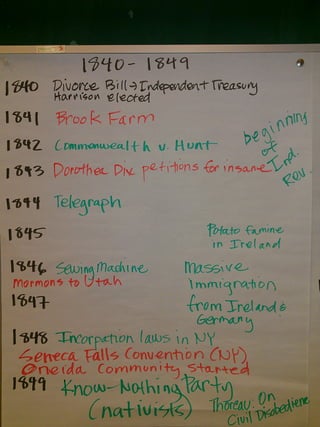 1840 - 1849
1840 Divorce Bill → Independent Treasury
Harrison elected
1841 Brook Farm
beginning
of
Ind.
Rev.
1842 Commonwealth v. Hunt
1843 Dorothea Dix petitions for insane
1844 Telegraph
1845 Potato famine
in Ireland
1846 Sewing Machine
Mormons to Utah
1847
Massive
Immigration
from Ireland &
Germany
1848 Incorpation laws in NY
Seneca Falls Convention (NY)
Oneida Community started
1849 Know-Nothing Party
(nativists)
Thoreau: On
Civil Disobediene